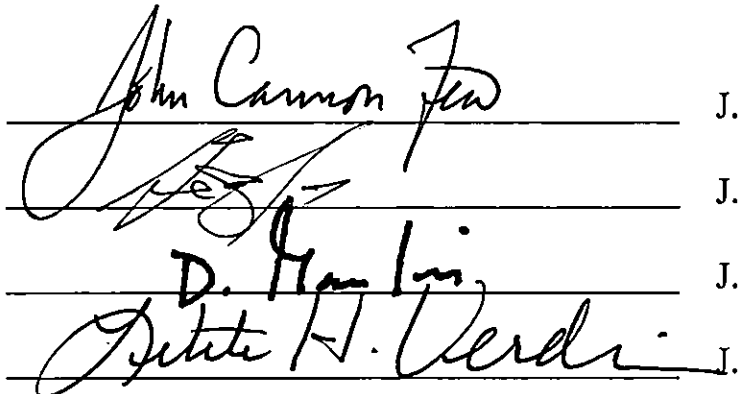 John Cannon Few J.
J.
D. J.
Letitia H. Verdin J.